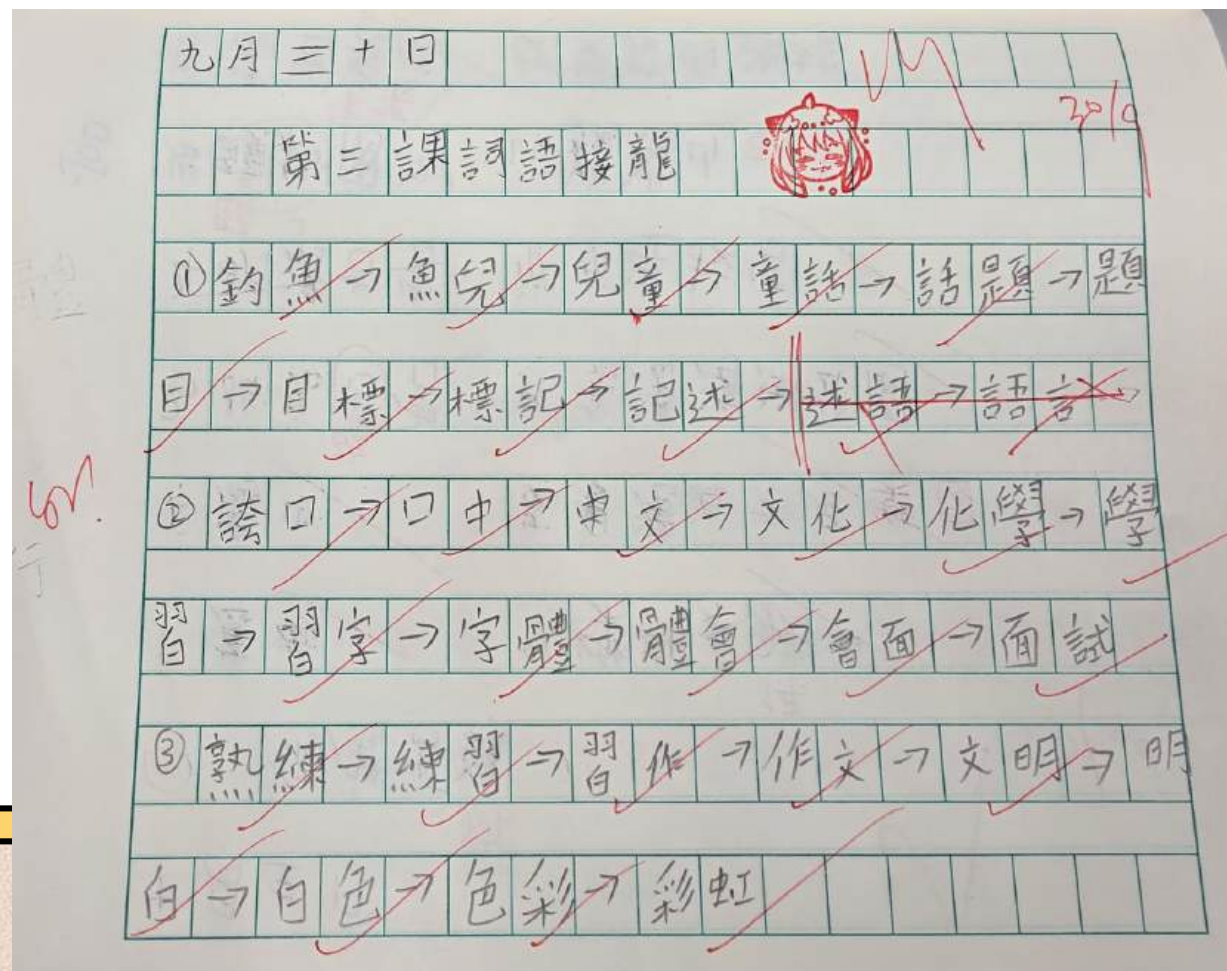 九月三十日
30/9
第三課詞語接龍
①釣魚→魚兒→兒童→童話→話題→題
目→目標→標記→記述→述語→語言
②誇口→口中→中文→文化→化學→學
習→習字→字體→體會→會面→面試
③熟練→練習→習作→作文→文明→明
白→白色→色彩→彩虹